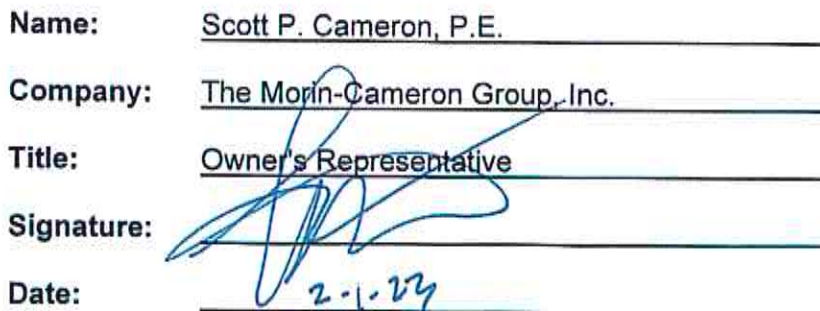 Name: Scott P. Cameron, P.E.
Company: The Morin-Cameron Group, Inc.
Title: Owner's Representative
Signature:
Date: 2-1-23